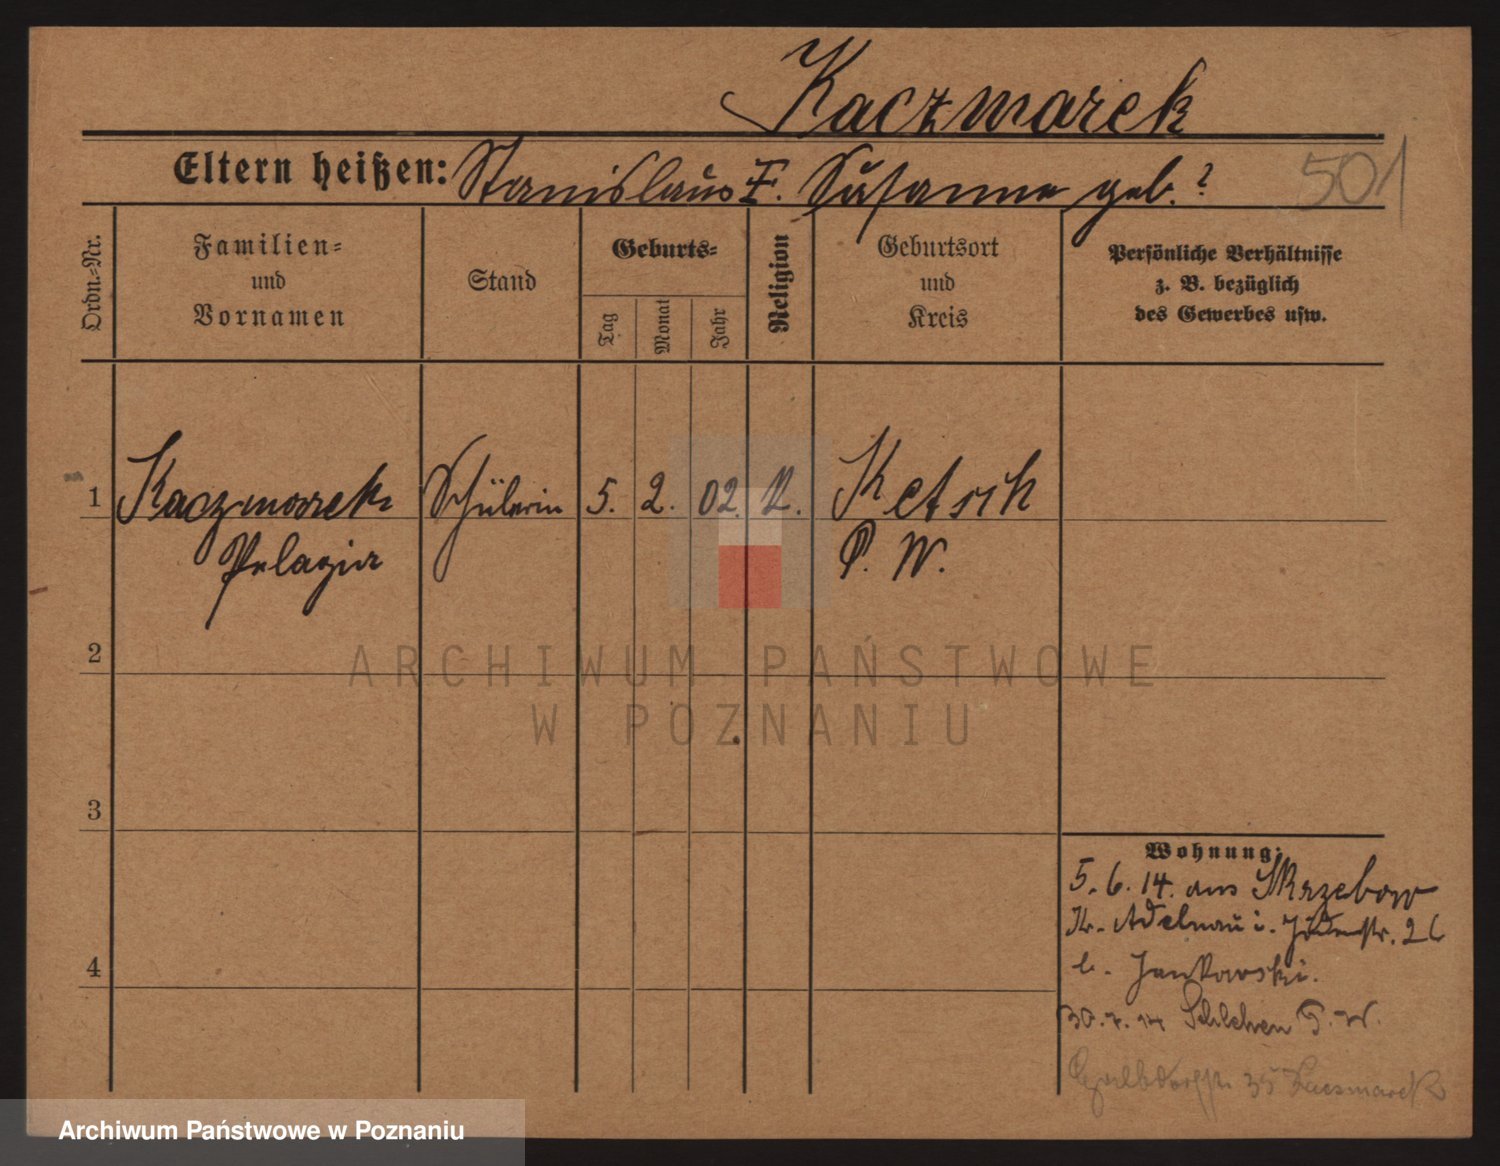 Kaczmarek
Eltern heißen: Stanislaus u. Susanna geb. ?
501
Ordn.-Nr.
Familien- und Vornamen
Stand
Geburts-
Tag
Monat
Jahr
Religion
Geburtsort und Kreis
Persönliche Verhältnisse z. B. bezüglich des Gewerbes usw.
1 Kaczmarek Schülerin 5. 2. 02. K. Ketsch
Pelagia P. W.
2
ARCHIWUM PAŃSTWOWE
W POZNANIU
3
4
Wohnung:
5. 6. 14. aus Skrzebow
Kr. Adelnau i. Judenstr. 26
b. Jankowski.
30. 7. 14 Schlehen P. W.
35 Kaczmarek
Archiwum Państwowe w Poznaniu